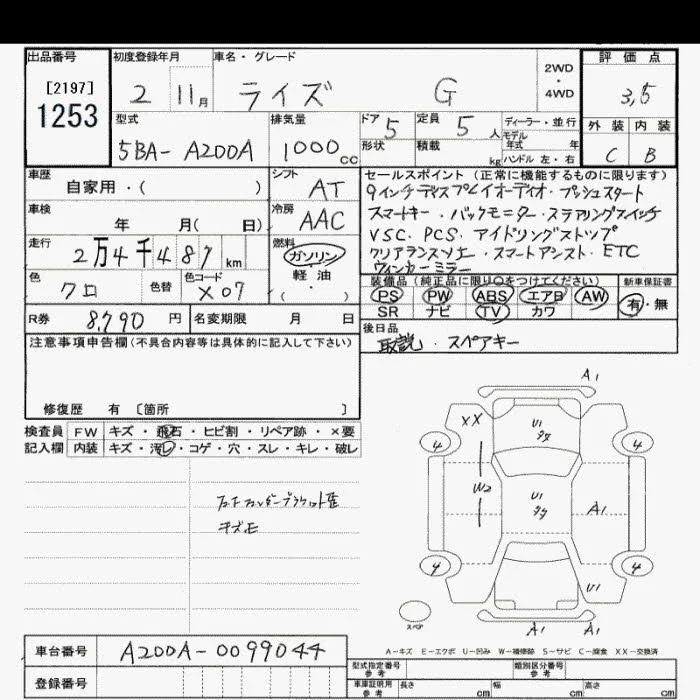 出品番号 初度登録年月 車名・グレード 評価点
[2197] 2 11月 ライズ G 2WD ・ 4WD 3,5
1253
型式 排気量 ドア 5 定員 5人 ディーラー・並行 外装 内装
5BA- A200A 1000cc 形状 積載 kg モデル年式 年 ハンドル 左・右 C B
車歴 シフト セールスポイント（正常に機能するものに限ります）
自家用・( ) AT 9インチディスプレイオーディオ・プッシュスタート
車検 冷房 スマートキー・バックモニター・ステアリングスイッチ
年 月( 日) AAC VSC. PCS. アイドリングストップ
走行 燃料 クリアランスソナー・スマートアシスト・ETC
2万4千487km ガソリン ウィンカーミラー
色 色替 色コード 軽油 装備品（純正品に限り○をつけてください） 新車保証書
クロ X07 ・( ) PS PW ABS エアB AW 有・無
SR ナビ TV カワ
R券 8,790円 名変期限 月 日 後日品
注意事項申告欄(不具合内容等は具体的に記入して下さい) 取説・スペアキー
修復歴 有 〔箇所 〕
検査員 FW キズ・飛石・ヒビ割・リペア跡・×要
記入欄 内装 キズ・汚レ・コゲ・穴・スレ・キレ・破レ
キズ
A1
XX U1
4 4
W2 U1 A1
4 4
U1
スペア A1 A1
A-キズ E-エクボ U-凹み W-補修跡 S-サビ C-腐食 XX-交換済
車台番号 A200A-0099044 型式指定番号 参考 類別区分番号 参考
登録番号 車庫証明用 参考 長さ cm 幅 cm 高さ cm